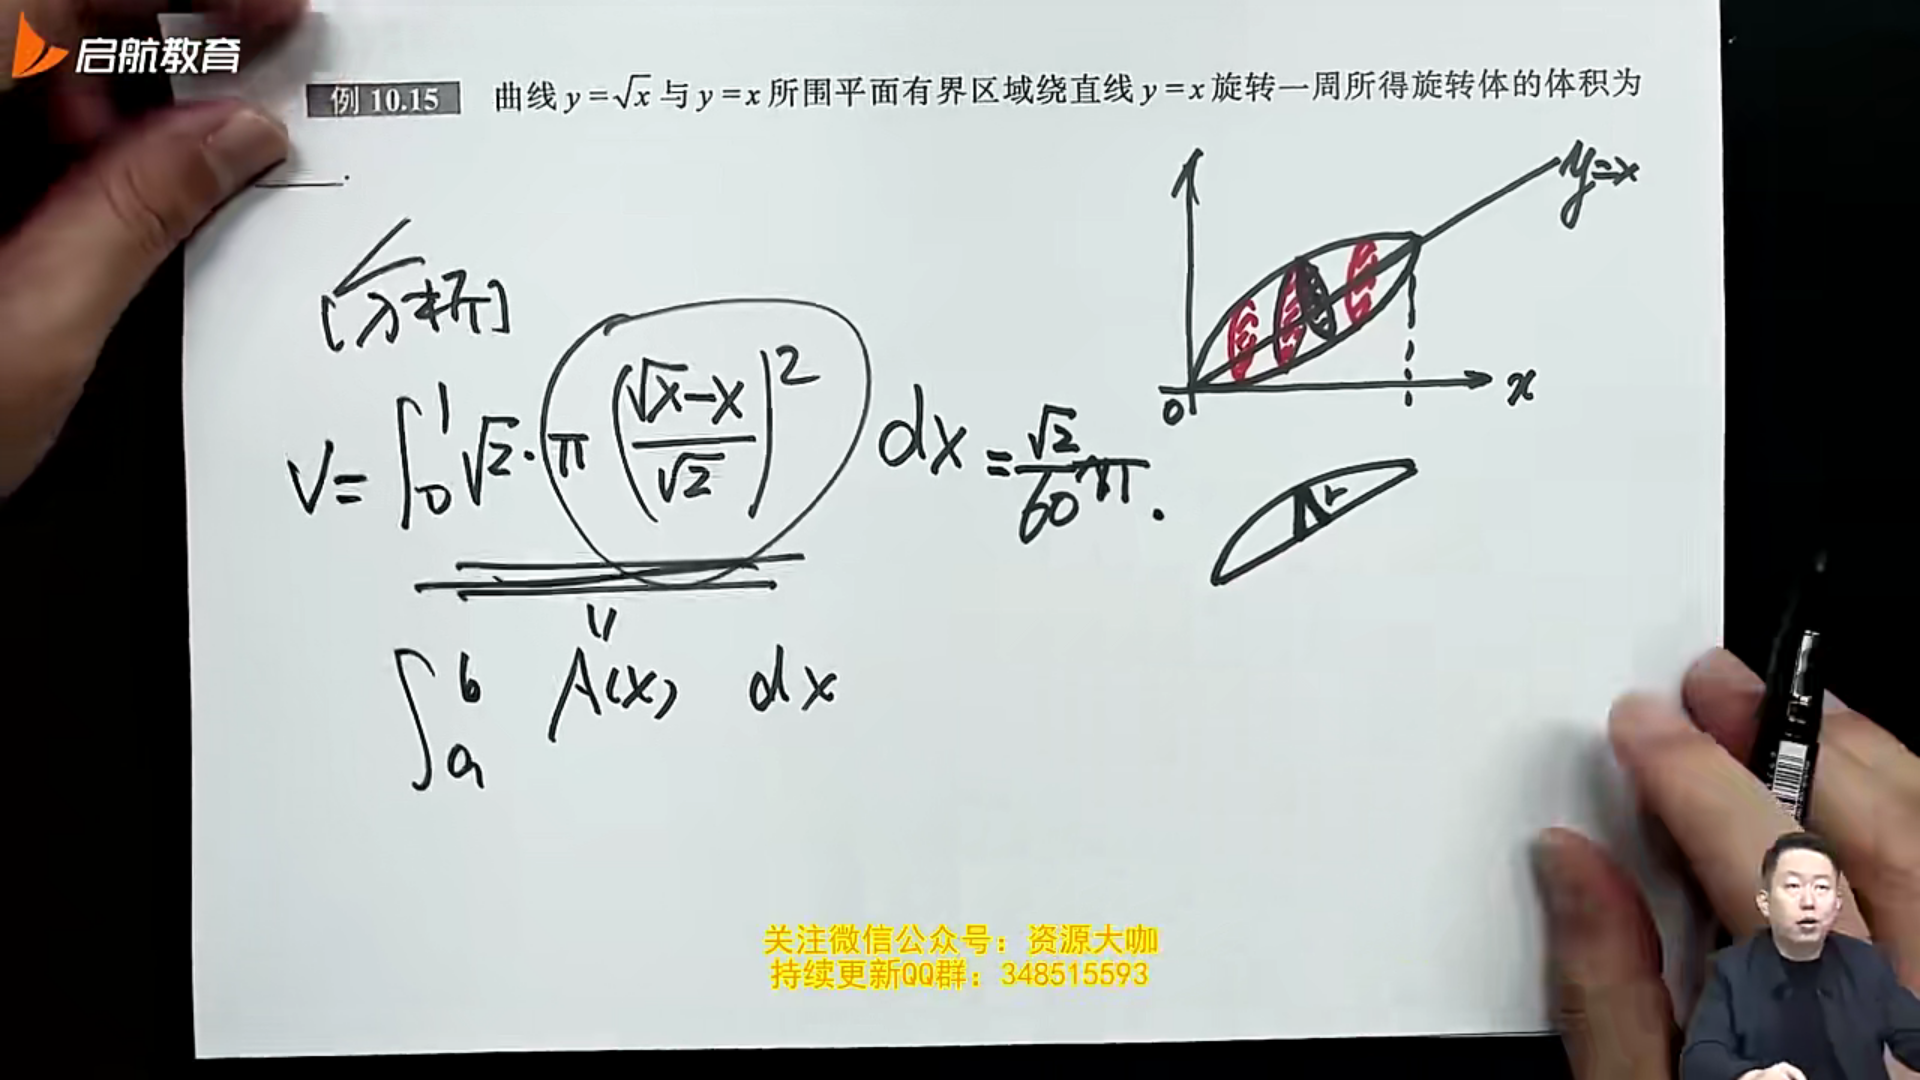 启航教育
例 10.15 曲线 y=√x 与 y=x 所围平面有界区域绕直线 y=x 旋转一周所得旋转体的体积为
____.
[分析]
V=∫₀¹ √2·π((√x-x)/√2)² dx = √2/60 π.
∫ₐᵇ A(x) dx
y=x
x
0
r
关注微信公众号：资源大咖
持续更新QQ群：348515593